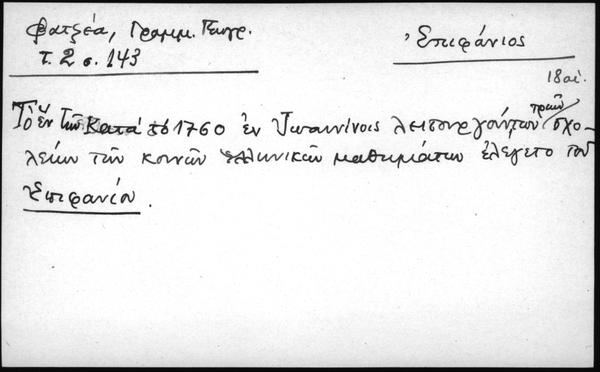 Φατζέα, Γραμμ. Γεωγρ.
τ. 2 σ. 143
Ἐπιφάνιος
18 αἰ.
Τὸ ἓν τῶν κατὰ τὸ 1760 ἐν Ἰωαννίνοις λειτουργούντων τριῶν σχο-
λείων τῶν κοινῶν ἑλληνικῶν μαθημάτων ἐλέγετο τοῦ
Ἐπιφανίου.